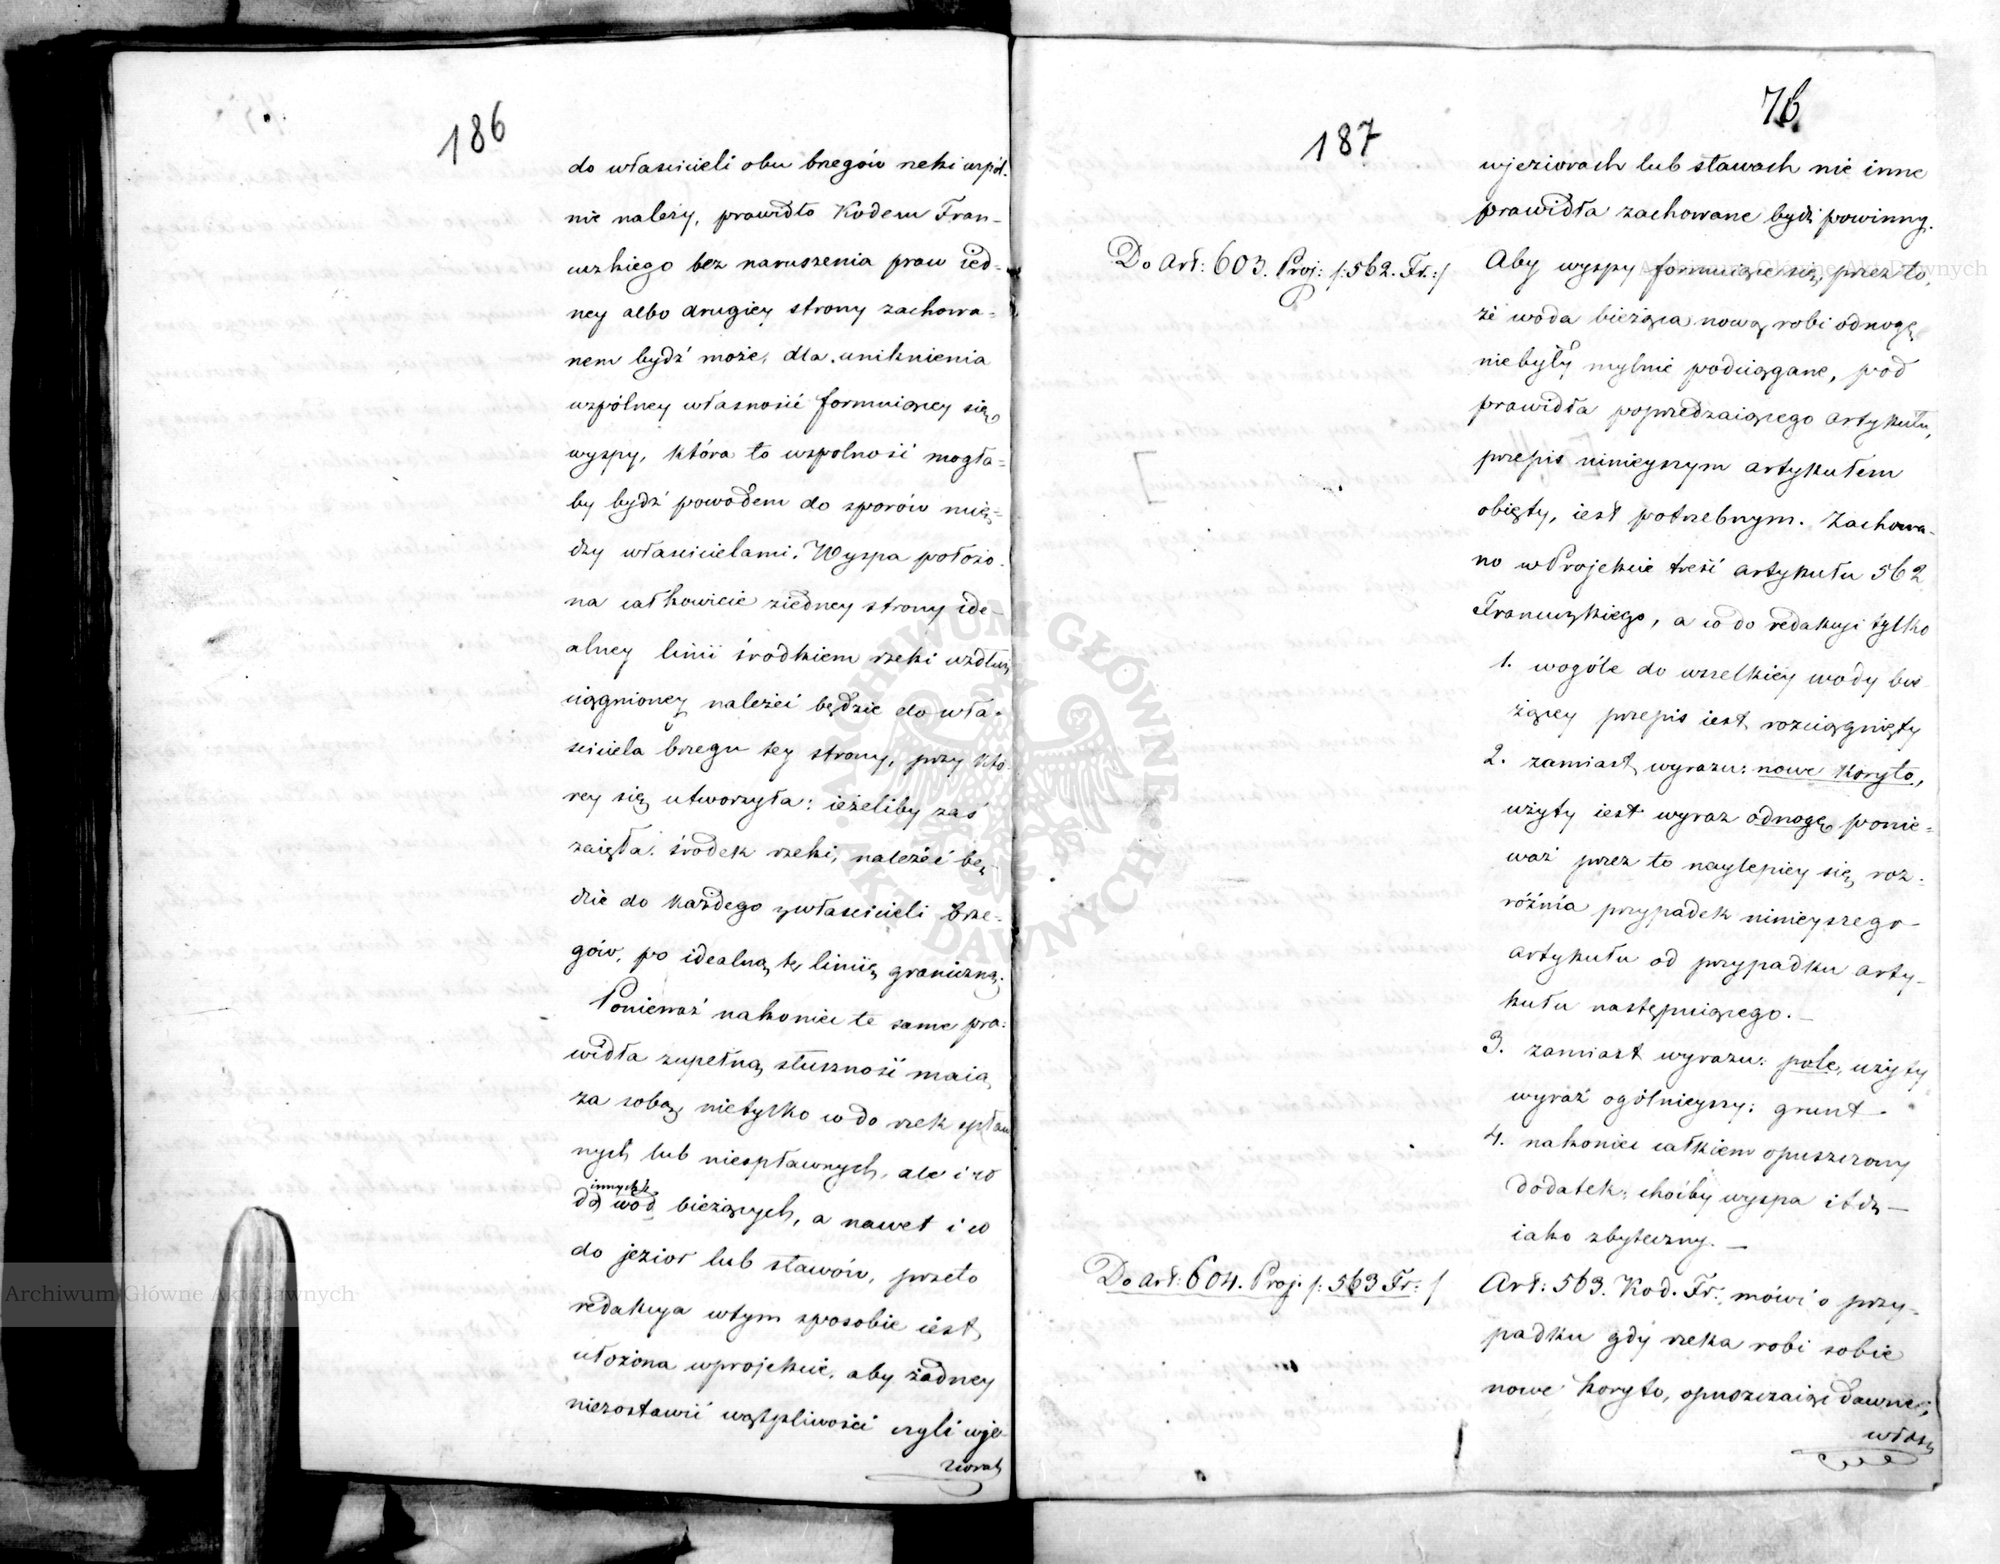 186
do właścicieli obu brzegów rzeki wspól-
nie należy, prawidło Kodexu Fran-
cuzkiego bez naruszenia praw ied-
ney albo drugiey strony zachowa-
nem bydź może, dla uniknienia
wspólney własności formuiącey się
wyspy, która to wspolność mogła-
by bydź powodem do sporów mię-
dzy właścicielami. Wyspa położo-
na całkowicie ziedney strony ide-
alney linii środkiem rzeki wzdłuż
ciągnioney należeć będzie do wła-
ściciela brzegu tey strony, przy któ-
rey się utworzyła: ieżeliby zaś
zaięła środek rzeki, należeć bę-
dzie do każdego zwłaścicieli brze-
gów, po idealną tę liniię graniczną.
Ponieważ nakoniec te same pra-
widła zupełną słuszność maią
za sobą, nietylko co do rzek spław
nych lub niespławnych, ale i co
innych
do wód bieżących, a nawet i co
do jezior lub stawów, przeto
redakcya wtym sposobie iest
ułożona wprojekcie, aby żadney
niezostawić wątpliwości czyli wje-
ziorach
76.
187
wjeziorach lub stawach nie inne
prawidła zachowane bydź powinny.
Do Art: 603. Proj: /:562. Fr.:/
Aby wyspy formuiące się, przez to,
że woda bieżąca nową robi odnogę
niebyły mylnie podciągane, pod
prawidła poprzedzaiącego artykułu,
przepis ninieyszym artykułem
obięty, iest potrzebnym. Zachowa-
no w Projekcie treść artykułu 562
Francuzkiego, a co do redakcyi tylko
1. wogóle do wszelkiey wody bie-
żącey przepis iest rozciągnięty
2. zamiast wyrazu: nowe Koryto,
użyty iest wyraz odnogę ponie-
waż przez to naylepiey się roz-
różnia przypadek ninieyszego
artykułu od przypadku arty-
kułu następuiącego. —
3. zamiast wyrazu: pole, użyty
wyraz ogólnieyszy: grunt —
4. nakoniec całkiem opuszczony
dodatek: choćby wyspa itd. —
iako zbyteczny. —
Do Art: 604. Proj: /: 563 Fr: /
Art: 563. Kod. Fr: mówi o przy-
padku gdy rzeka robi sobie
nowe koryto, opuszczaiąc dawne;
Archiwum Główne Akt Dawnych
Archiwum Główne Akt Dawnych
ARCHIWUM GŁÓWNE AKT DAWNYCH